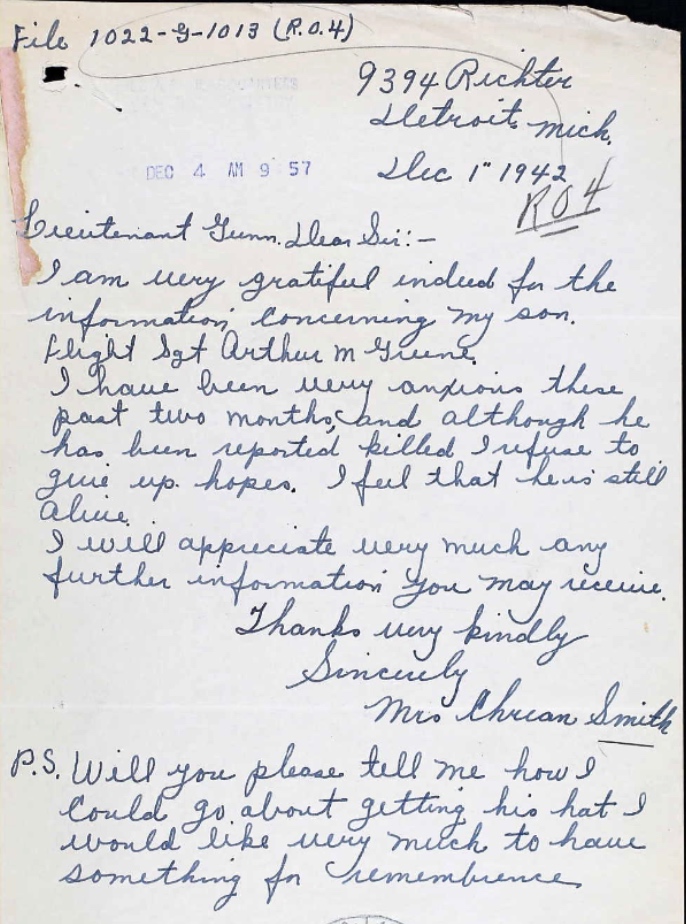 File 1022-G-1013 (R.O.4)
9394 Richter
Detroit, Mich.
DEC 4 AM 9 57
Dec 1" 1942
RO4
Lieutenant Gunn. Dear Sir:-
I am very gratiful indeed for the
information, concerning my son.
Flight Sgt Arthur M Greene.
I have been very anxious these
past two months, and although he
has been reported killed I refuse to
give up. hopes. I feel that he is still
alive.
I will appreciate very much any
further information you may receive.
Thanks very kindly
Sincerely
Mrs Smith
P.S. Will you please tell me how I
could go about getting his hat I
would like very much to have
something for remembrence